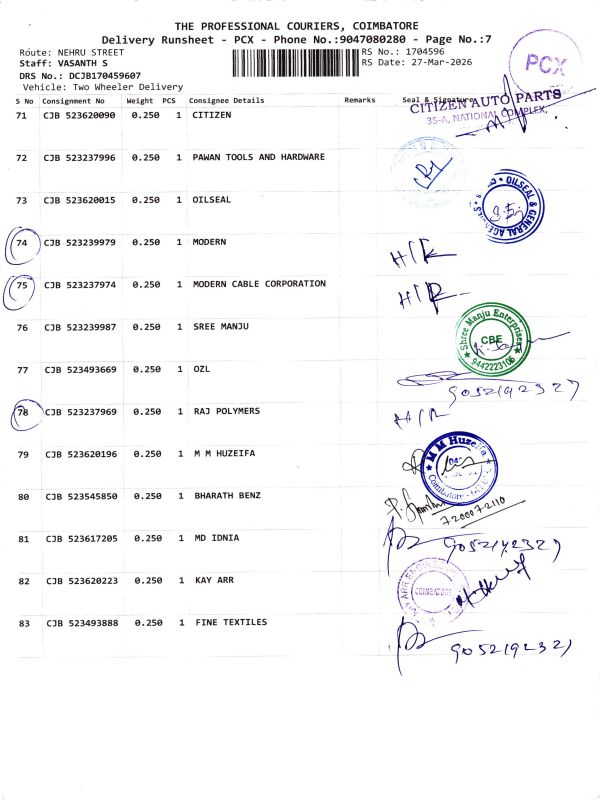 THE PROFESSIONAL COURIERS, COIMBATORE
Delivery Runsheet - PCX - Phone No.:9047080280 - Page No.:7
Route: NEHRU STREET
RS No.: 1704596
Staff: VASANTH S
RS Date: 27-Mar-2026
DRS No.: DCJB170459607
Vehicle: Two Wheeler Delivery
PCX
S No Consignment No Weight PCS Consignee Details Remarks Seal & Signature
CITIZEN AUTO PARTS
35-A, NATIONAL COMPLEX,
71 CJB 523620090 0.250 1 CITIZEN
72 CJB 523237996 0.250 1 PAWAN TOOLS AND HARDWARE
73 CJB 523620015 0.250 1 OILSEAL
OILSEAL & GENERAL AGENCIES
74 CJB 523239979 0.250 1 MODERN
75 CJB 523237974 0.250 1 MODERN CABLE CORPORATION
76 CJB 523239987 0.250 1 SREE MANJU
Shree Manju Enterprises
CBE
9442223106
77 CJB 523493669 0.250 1 OZL
9052192327
78 CJB 523237969 0.250 1 RAJ POLYMERS
79 CJB 523620196 0.250 1 M M HUZEIFA
M M Huzeifa
Coimbatore
80 CJB 523545850 0.250 1 BHARATH BENZ
720007-2110
81 CJB 523617205 0.250 1 MD IDNIA
9052192327
82 CJB 523620223 0.250 1 KAY ARR
COIMBATORE
83 CJB 523493888 0.250 1 FINE TEXTILES
9052192327